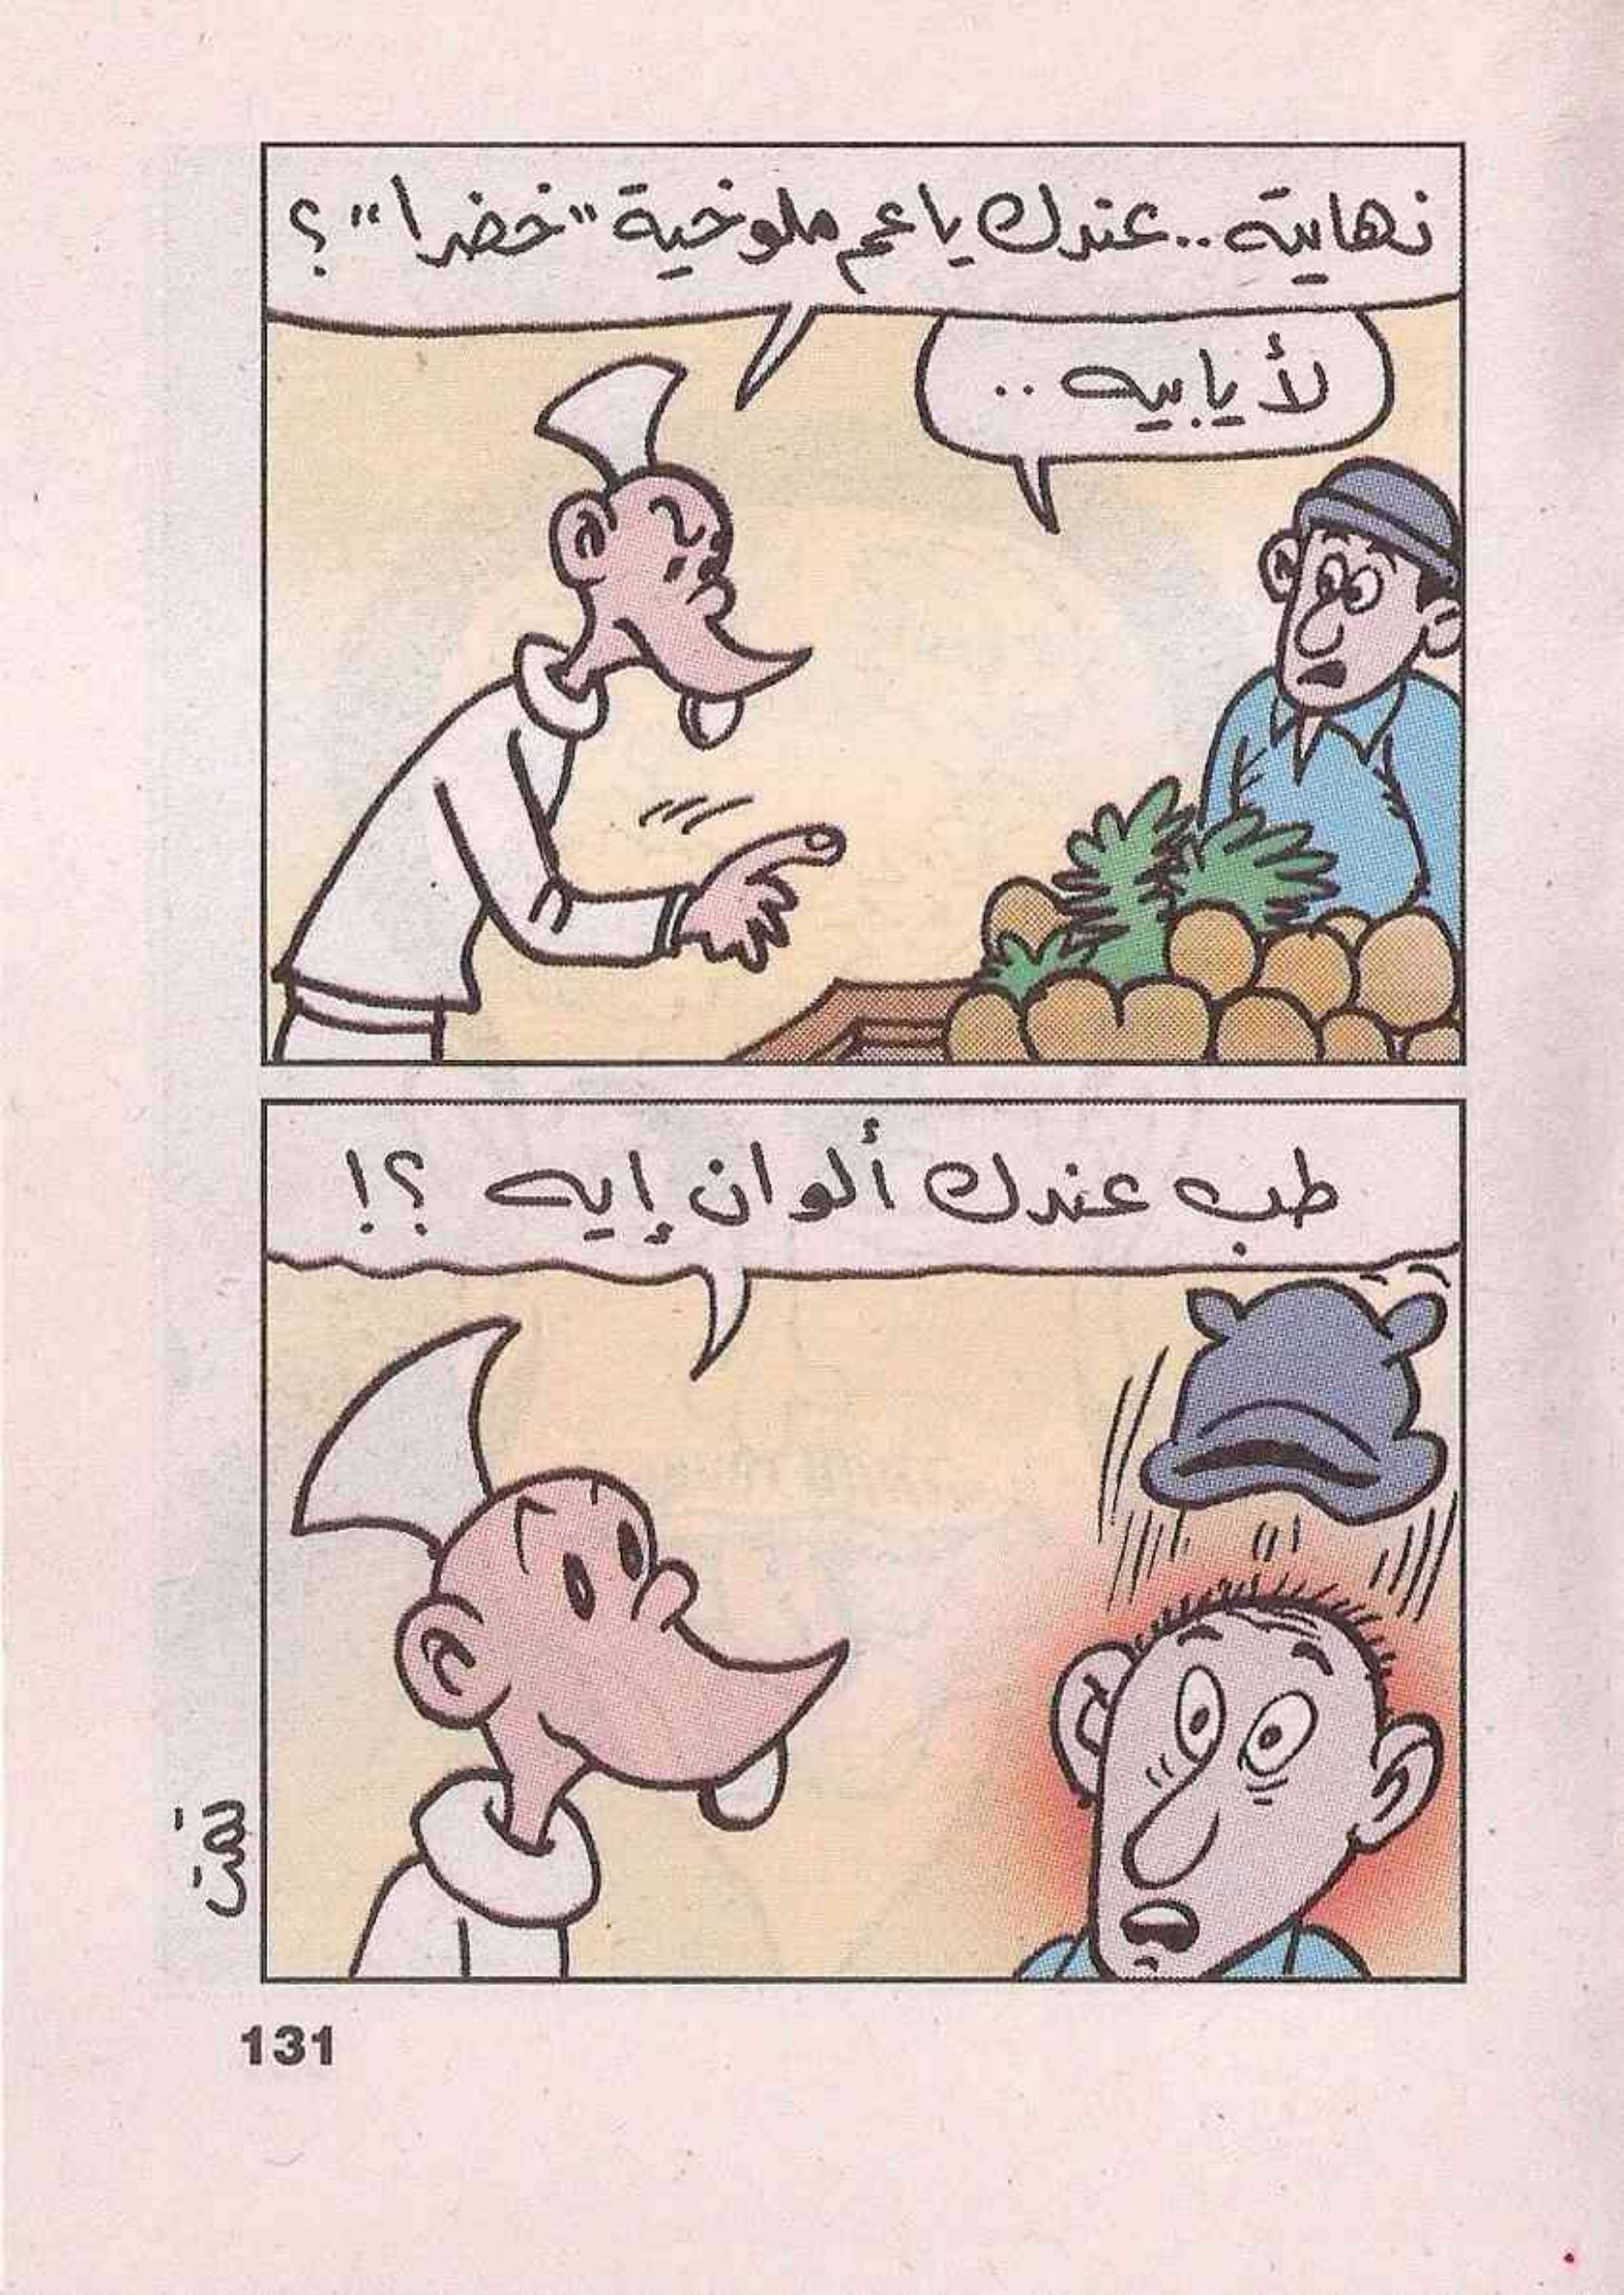 نهايته.. عندك يا عم ملوخية "خضرا"؟
لأ يا بيه ..
طب عندك ألوان إيه ؟!
131